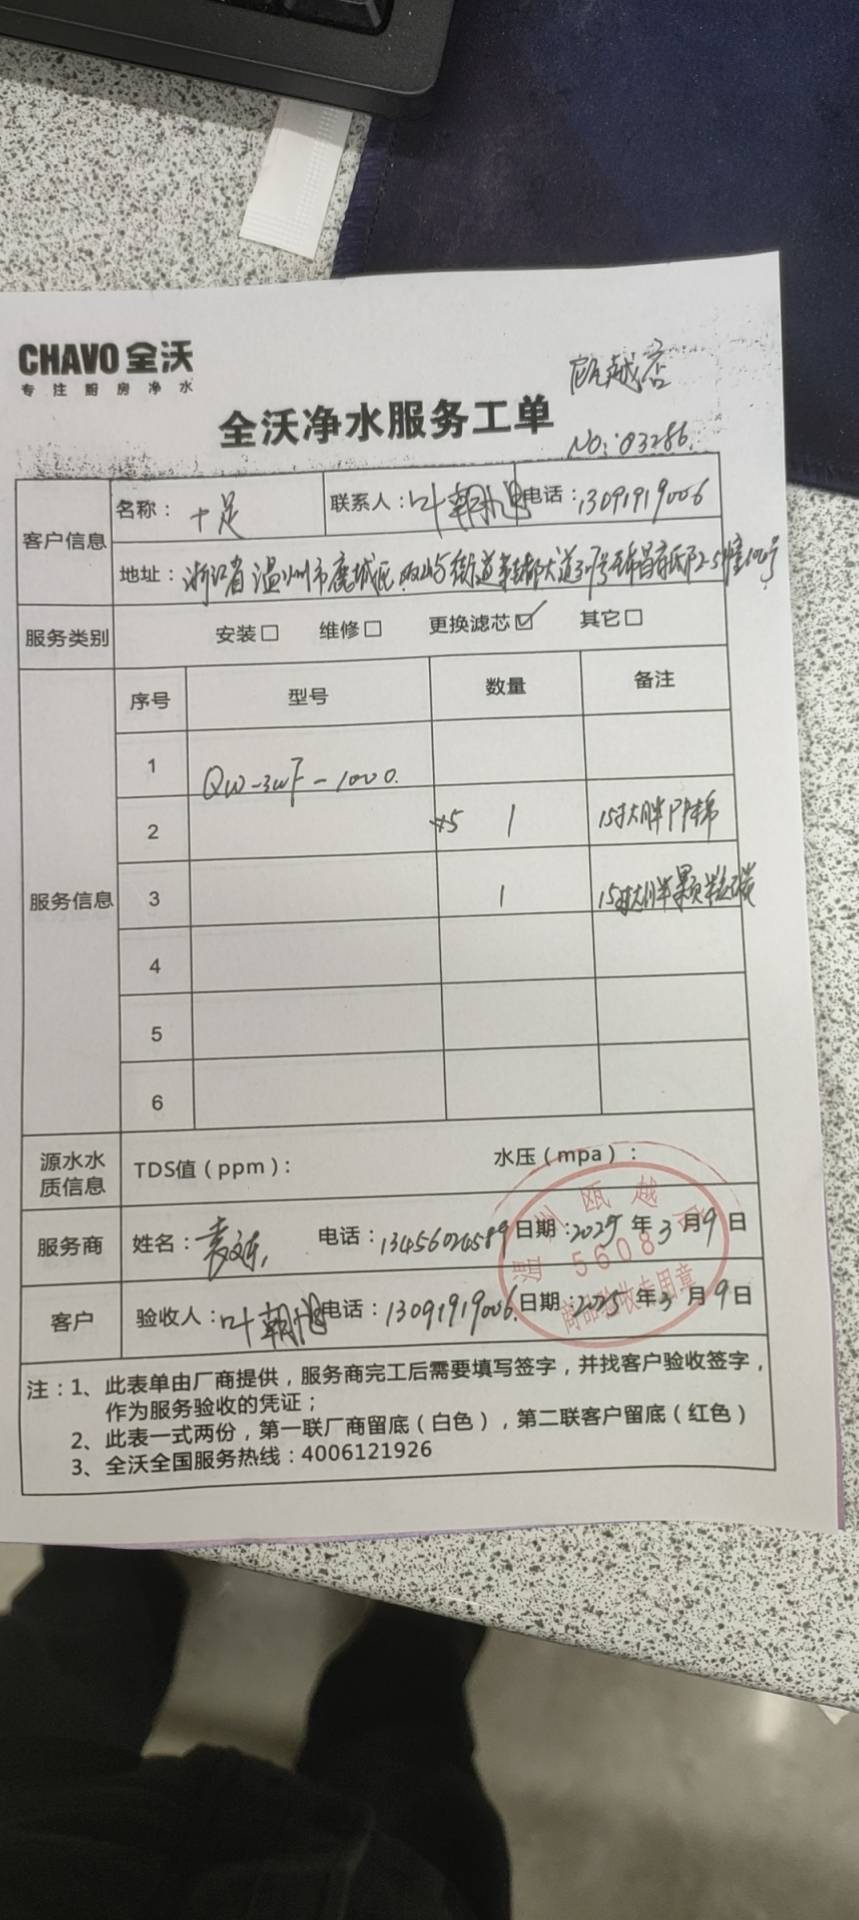 CHAVO 全沃
专注厨房净水
瓯越店
全沃净水服务工单
NO: 03286.
客户信息 名称: 十足 联系人: 叶朝旭 电话: 13091919006
地址: 浙江省温州市鹿城区双屿街道 大道
服务类别 安装□ 维修□ 更换滤芯☑ 其它□
服务信息 序号 型号 数量 备注
1 QW-3WF-1000.
2 1 15寸大胖PP棉
3 1 15寸大胖颗粒碳
4
5
6
源水水质信息 TDS值(ppm): 水压(mpa):
服务商 姓名: 电话: 13456024589 日期: 2025年3月9日
客户 验收人: 叶朝旭 电话: 13091919006. 日期: 2025年3月9日
温州瓯越店
5608
商品验收专用章
注: 1、此表单由厂商提供,服务商完工后需要填写签字,并找客户验收签字,
作为服务验收的凭证;
2、此表一式两份,第一联厂商留底(白色),第二联客户留底(红色)
3、全沃全国服务热线: 4006121926